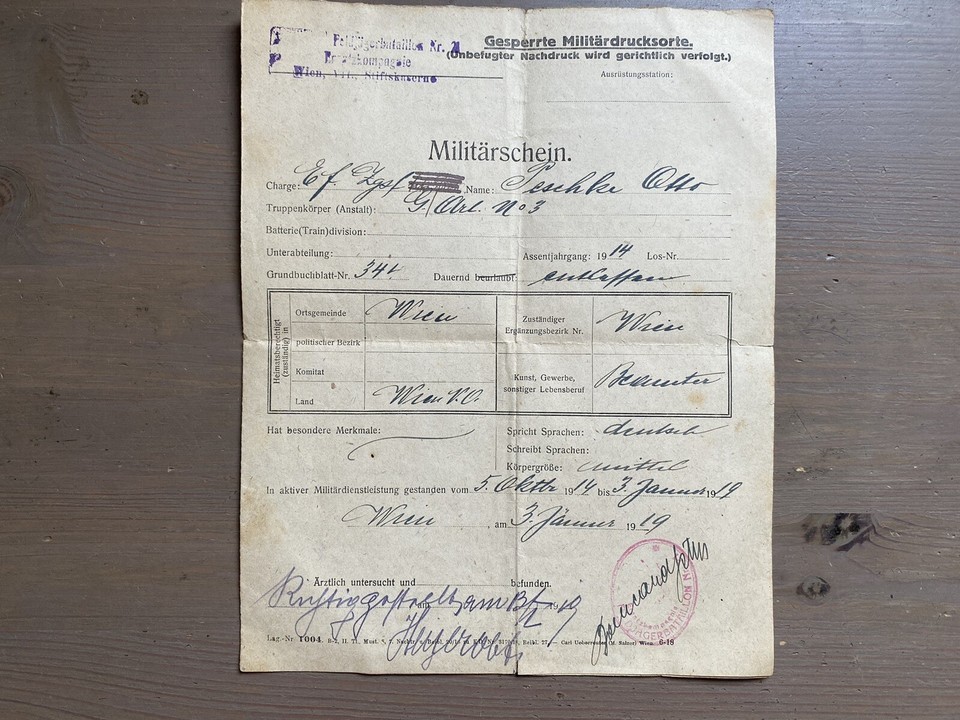 Feldjägerbataillon Nr. 21
Ersatzkompagnie
Wien, VII., Stiftskaserne
Gesperrte Militärdrucksorte.
(Unbefugter Nachdruck wird gerichtlich verfolgt.)
Ausrüstungsstation:
Militärschein.
Charge: Ef. Zgsf. Name: Peschke Otto
Truppenkörper (Anstalt): G. Art. No 3
Batterie(Train)division:
Unterabteilung: Assentjahrgang: 1914 Los-Nr.
Grundbuchblatt-Nr. 341 Dauernd beurlaubt: entlassen
Heimatsberechtigt (zuständig) in
Ortsgemeinde Wien
politischer Bezirk
Komitat
Land Wien N.Ö.
Zuständiger Ergänzungsbezirk Nr. Wien
Kunst, Gewerbe, sonstiger Lebensberuf Beamter
Hat besondere Merkmale:
Spricht Sprachen: deutsch
Schreibt Sprachen:
Körpergröße: mittel
In aktiver Militärdienstleistung gestanden vom 5. Oktbr 1914 bis 3. Jänner 1919
Wien, am 3. Jänner 1919
Ärztlich untersucht und befunden.
Richtiggestellt, am 1919
Lag.-Nr. 1004
JÄGERBATAILLON N
6-18